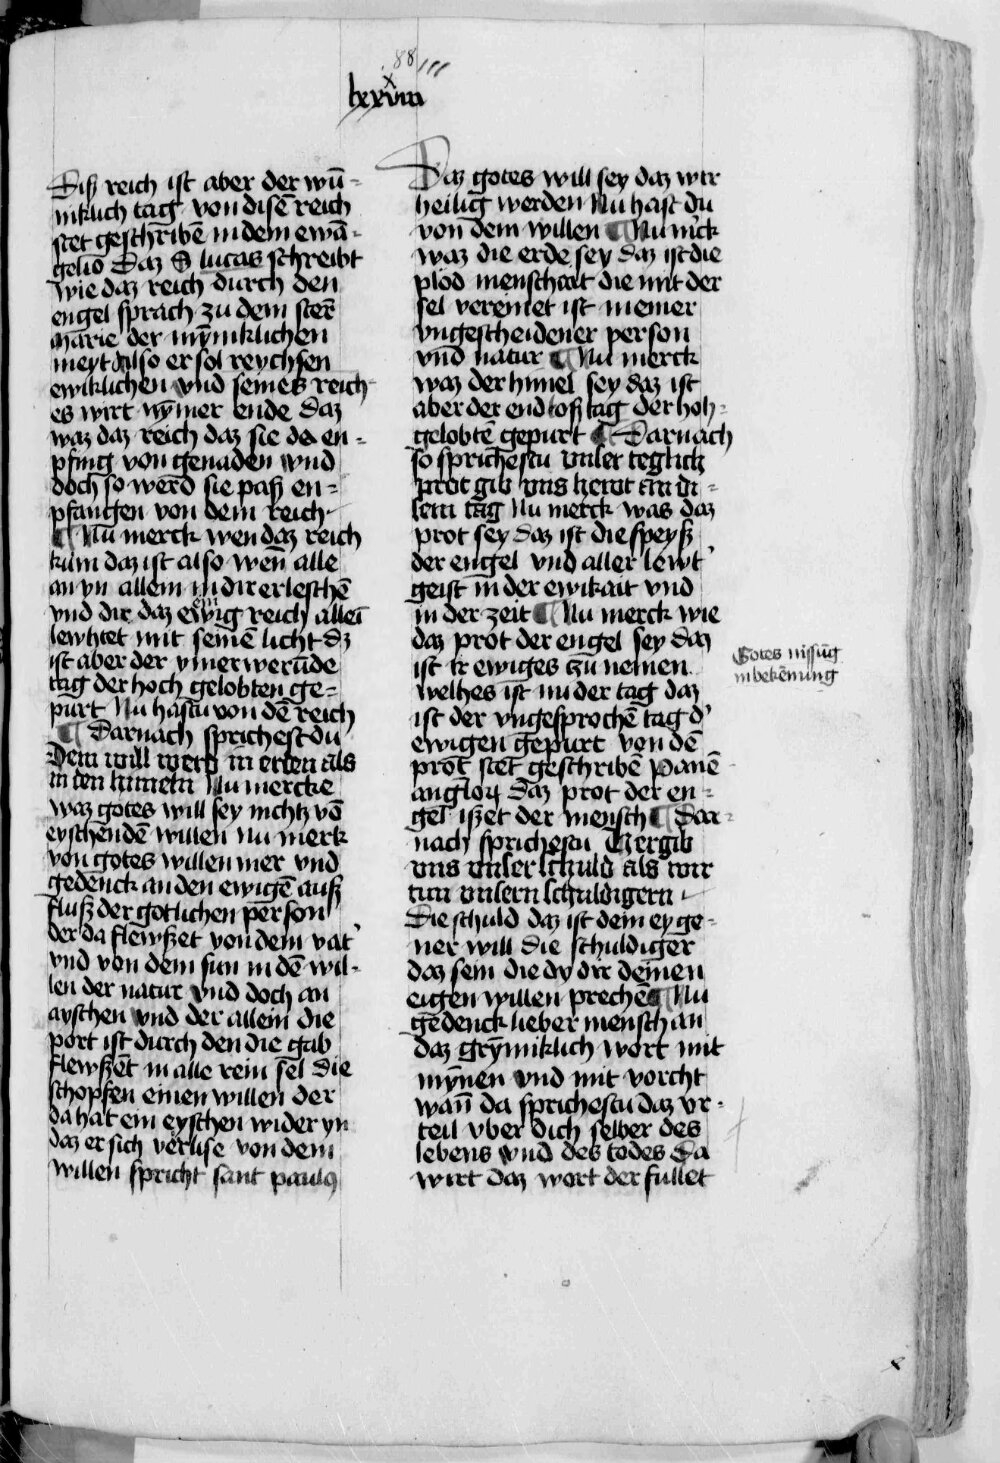 88
lxxxviii
Diß reich ist aber der wū-
niklich tag von disē reich
stet geschribē in dem ewā-
gelio Daz S lucas schreibt
wie daz reich durch den
engel sprach zu dem sterē
Marie der mȳniklichen
meyt Also er sol reychsen
ewiklichen vnd seines reich-
es wirt nȳmer ende Daz
waz daz reich daz sie da en-
pfing von genaden vnd
doch so werd sie paß en-
pfangen von dem reich
¶ Nu merck wen daz reich
kum daz ist also wen̄ alle
an yn allem in dir erleschē
vnd dir daz ewig reich allei
lewhtet mit seinē licht dz
ist aber der ymer werūde
tag der hoch gelobten ge-
purt Nu hastu von dē reich
¶ Darnach sprichest du
Dein will werd in erden als
in den himeln Nu mercke
waz gotes will sey nichtz vō
eyschendē willen nu merk
von gotes willen mer vnd
gedenck an den ewigē auß
fluß der gotlichen person
der da flewßet von dem vat'
vnd von dem sun in dē wil-
len der natur vnd doch an
ayschen vnd der allein die
port ist durch den die gab
flewßēt in alle rein sel die
schopfen einen willen der
da hat ein eyschen wider yn
daz er sich verlise von dem
willen spricht sant paulus
Daz gotes will sey daz wir
heilig werden Nu hast du
von dem willen ¶ Nu m'ck
waz die erde sey daz ist die
plod menschait die mit der
sel vereinet ist in einer
vngescheidener person
vnd natur ¶ Nu merck
waz der himel sey daz ist
aber der endloß tag der hoh-
gelobtē gepurt ¶ Darnach
so sprichestu vnser teglich
prot gib vns hewt an di-
sem tag Nu merck was daz
prot sey daz ist die speyß
der engel vnd aller lewt'
geist in der ewikait vnd
in der zeit ¶ Nu merck wie
daz prot der engel sey daz
ist ir ewiges zu nemen
welhes ist nu der tag daz
ist der vngesprochē tag d'
ewigen gepurt von dē
prot stet geschribē Panē
anglorȝ Daz prot der en-
gel ißet der mensch ¶ Dar-
nach sprichestu Vergib
vns vnser schuld als wir
tun vnsern schuldigern
Die schuld daz ist dein eyge-
ner will die schuldiger
daz sein die dy dir deinen
eigen willen prechē ¶ Nu
gedenck lieber mensch an
daz grȳmiklich wort mit
mȳnen vnd mit vorcht
wan̄ da sprichestu daz vr-
teil vber dich selber des
lebens vnd des todes Da
wirt daz wort der fullet
Gotes nissūg
in bekēnung